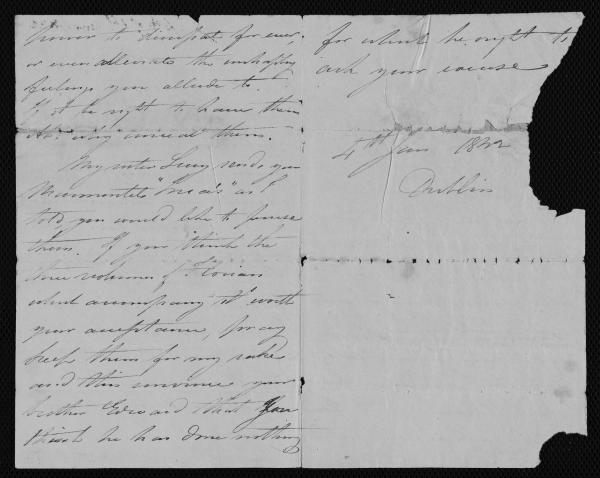 power to dissipate for ever,
or even alleviate the unhappy
feelings you allude to.
If it be right to have them
why conceal them.
My sister Lucy sends you
Marmontel's "Incas" as I
told you would like to peruse
them. If you think the
three volumes of Florian
which accompany it worth
your acceptance, pray
keep them for my sake
and thus convince your
brother Edward that you
think he has done nothing
for which he ought to
ask your excuse
4th Jan 1822
Dublin